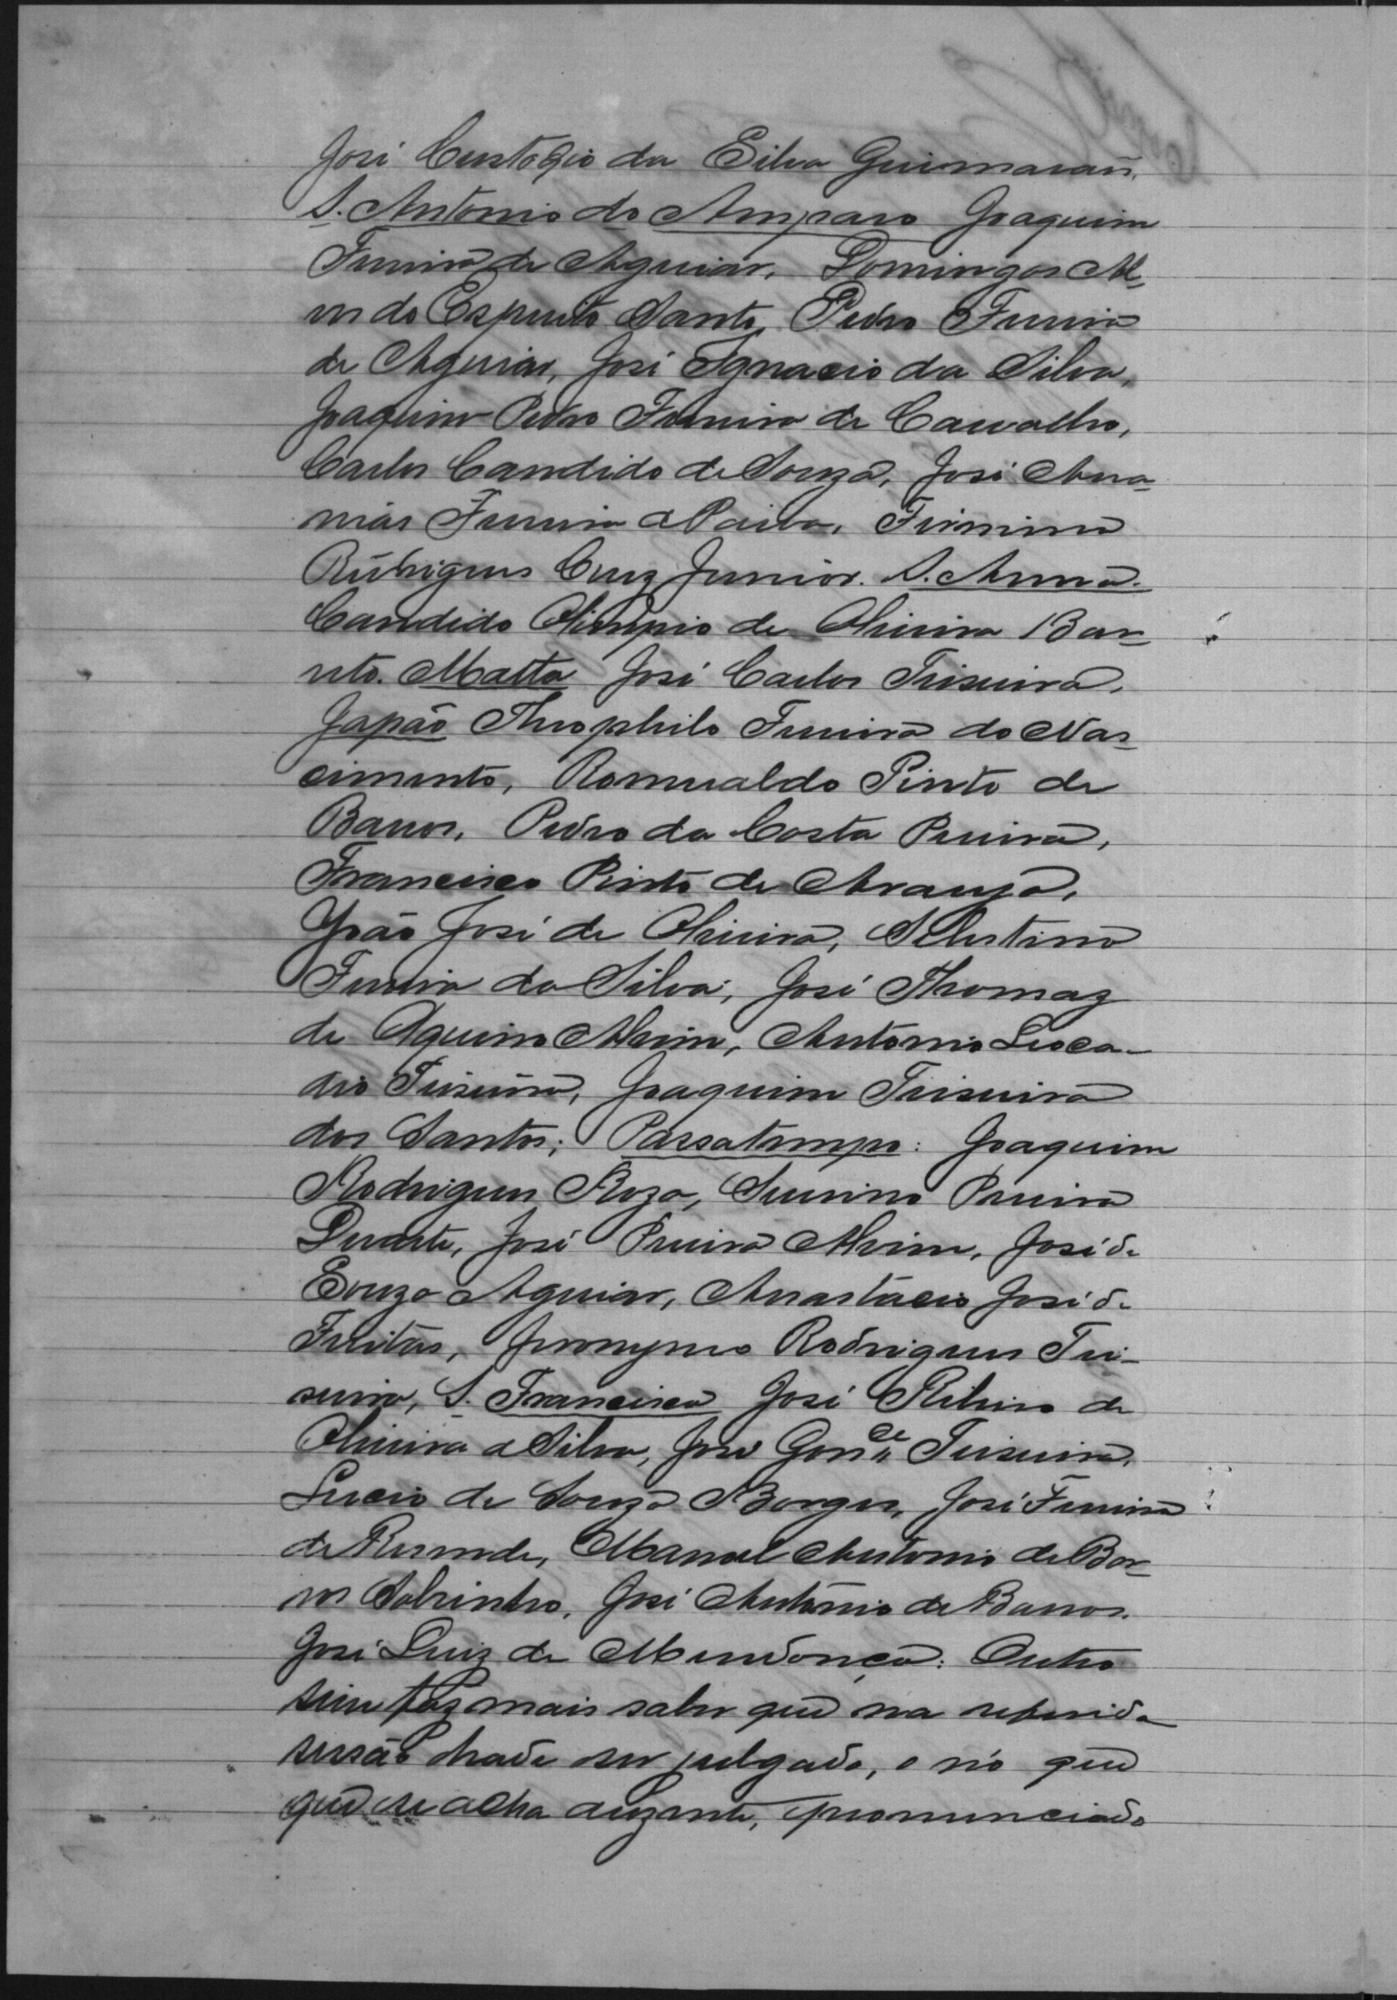 José Custodio da Silva Guimarães,
S. Antonio do Amparo Joaquim
Ferreira de Aguiar, Domingos Al-
ves do Espirito Santo, Pedro Ferreira
de Aguiar, José Ignacio da Silva,
Joaquim Pedro Ferreira de Carvalho,
Carlos Candido de Souza, José Ana-
nias Ferreira e Paiva, Firmino
Rodrigues Cruz Junior. S. Anna.
Candido Olimpio de Oliveira Bar-
reto. Matta José Carlos Teixeira.
Japão Theophilo Ferreira do Nas-
cimento, Romualdo Pinto de
Barros, Pedro da Costa Pereira,
Francisco Pinto de Araujo,
João José de Oliveira, Selestino
Ferreira da Silva, José Thomaz
de Aquino Alvim, Antonio Leoca-
dio Teixeira, Joaquim Teixeira
dos Santos; Passatempo: Joaquim
Rodrigues Roza, Severino Pereira
Duarte, José Pereira Alvim, José de
Souza Aguiar, Anastacio José de
Freitas, Jeronymo Rodrigues Tei-
xeira, S. Francisco José Ribeiro de
Oliveira e Silva, José Gonces Teixeira,
Lucio de Souza Borges, José Ferreira
de Resende, Manoel Antonio de Bar-
ros Sobrinho, José Antonio de Barros.
José Luiz de Mendonça: Outro
sim faz mais saber que na referida
sessão hade ser julgado, o réo que
que se acha auzente, pronunciado